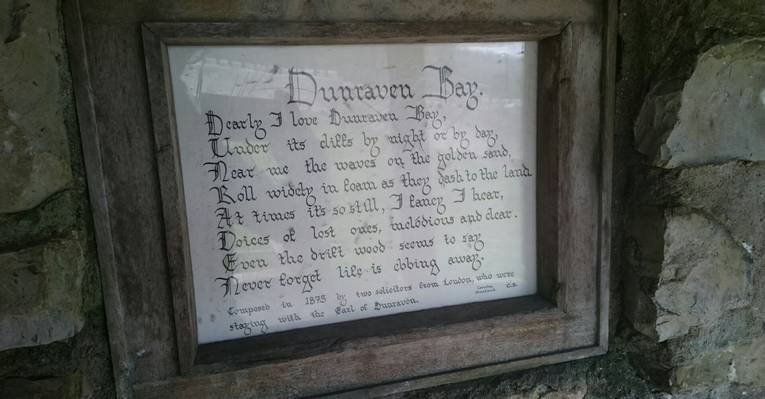 Dunraven Bay.
Dearly I love Dunraven Bay,
Under its cliffs by night or by day,
Near me the waves on the golden sand,
Roll widely in foam as they dash to the land
At times it's so still, I fancy I hear,
Voices of lost ones, melodious and clear.
Even the drift wood seems to say
Never forget life is ebbing away.
Composed in 1875 by two solicitors from London, who were
staying with the Earl of Dunraven.